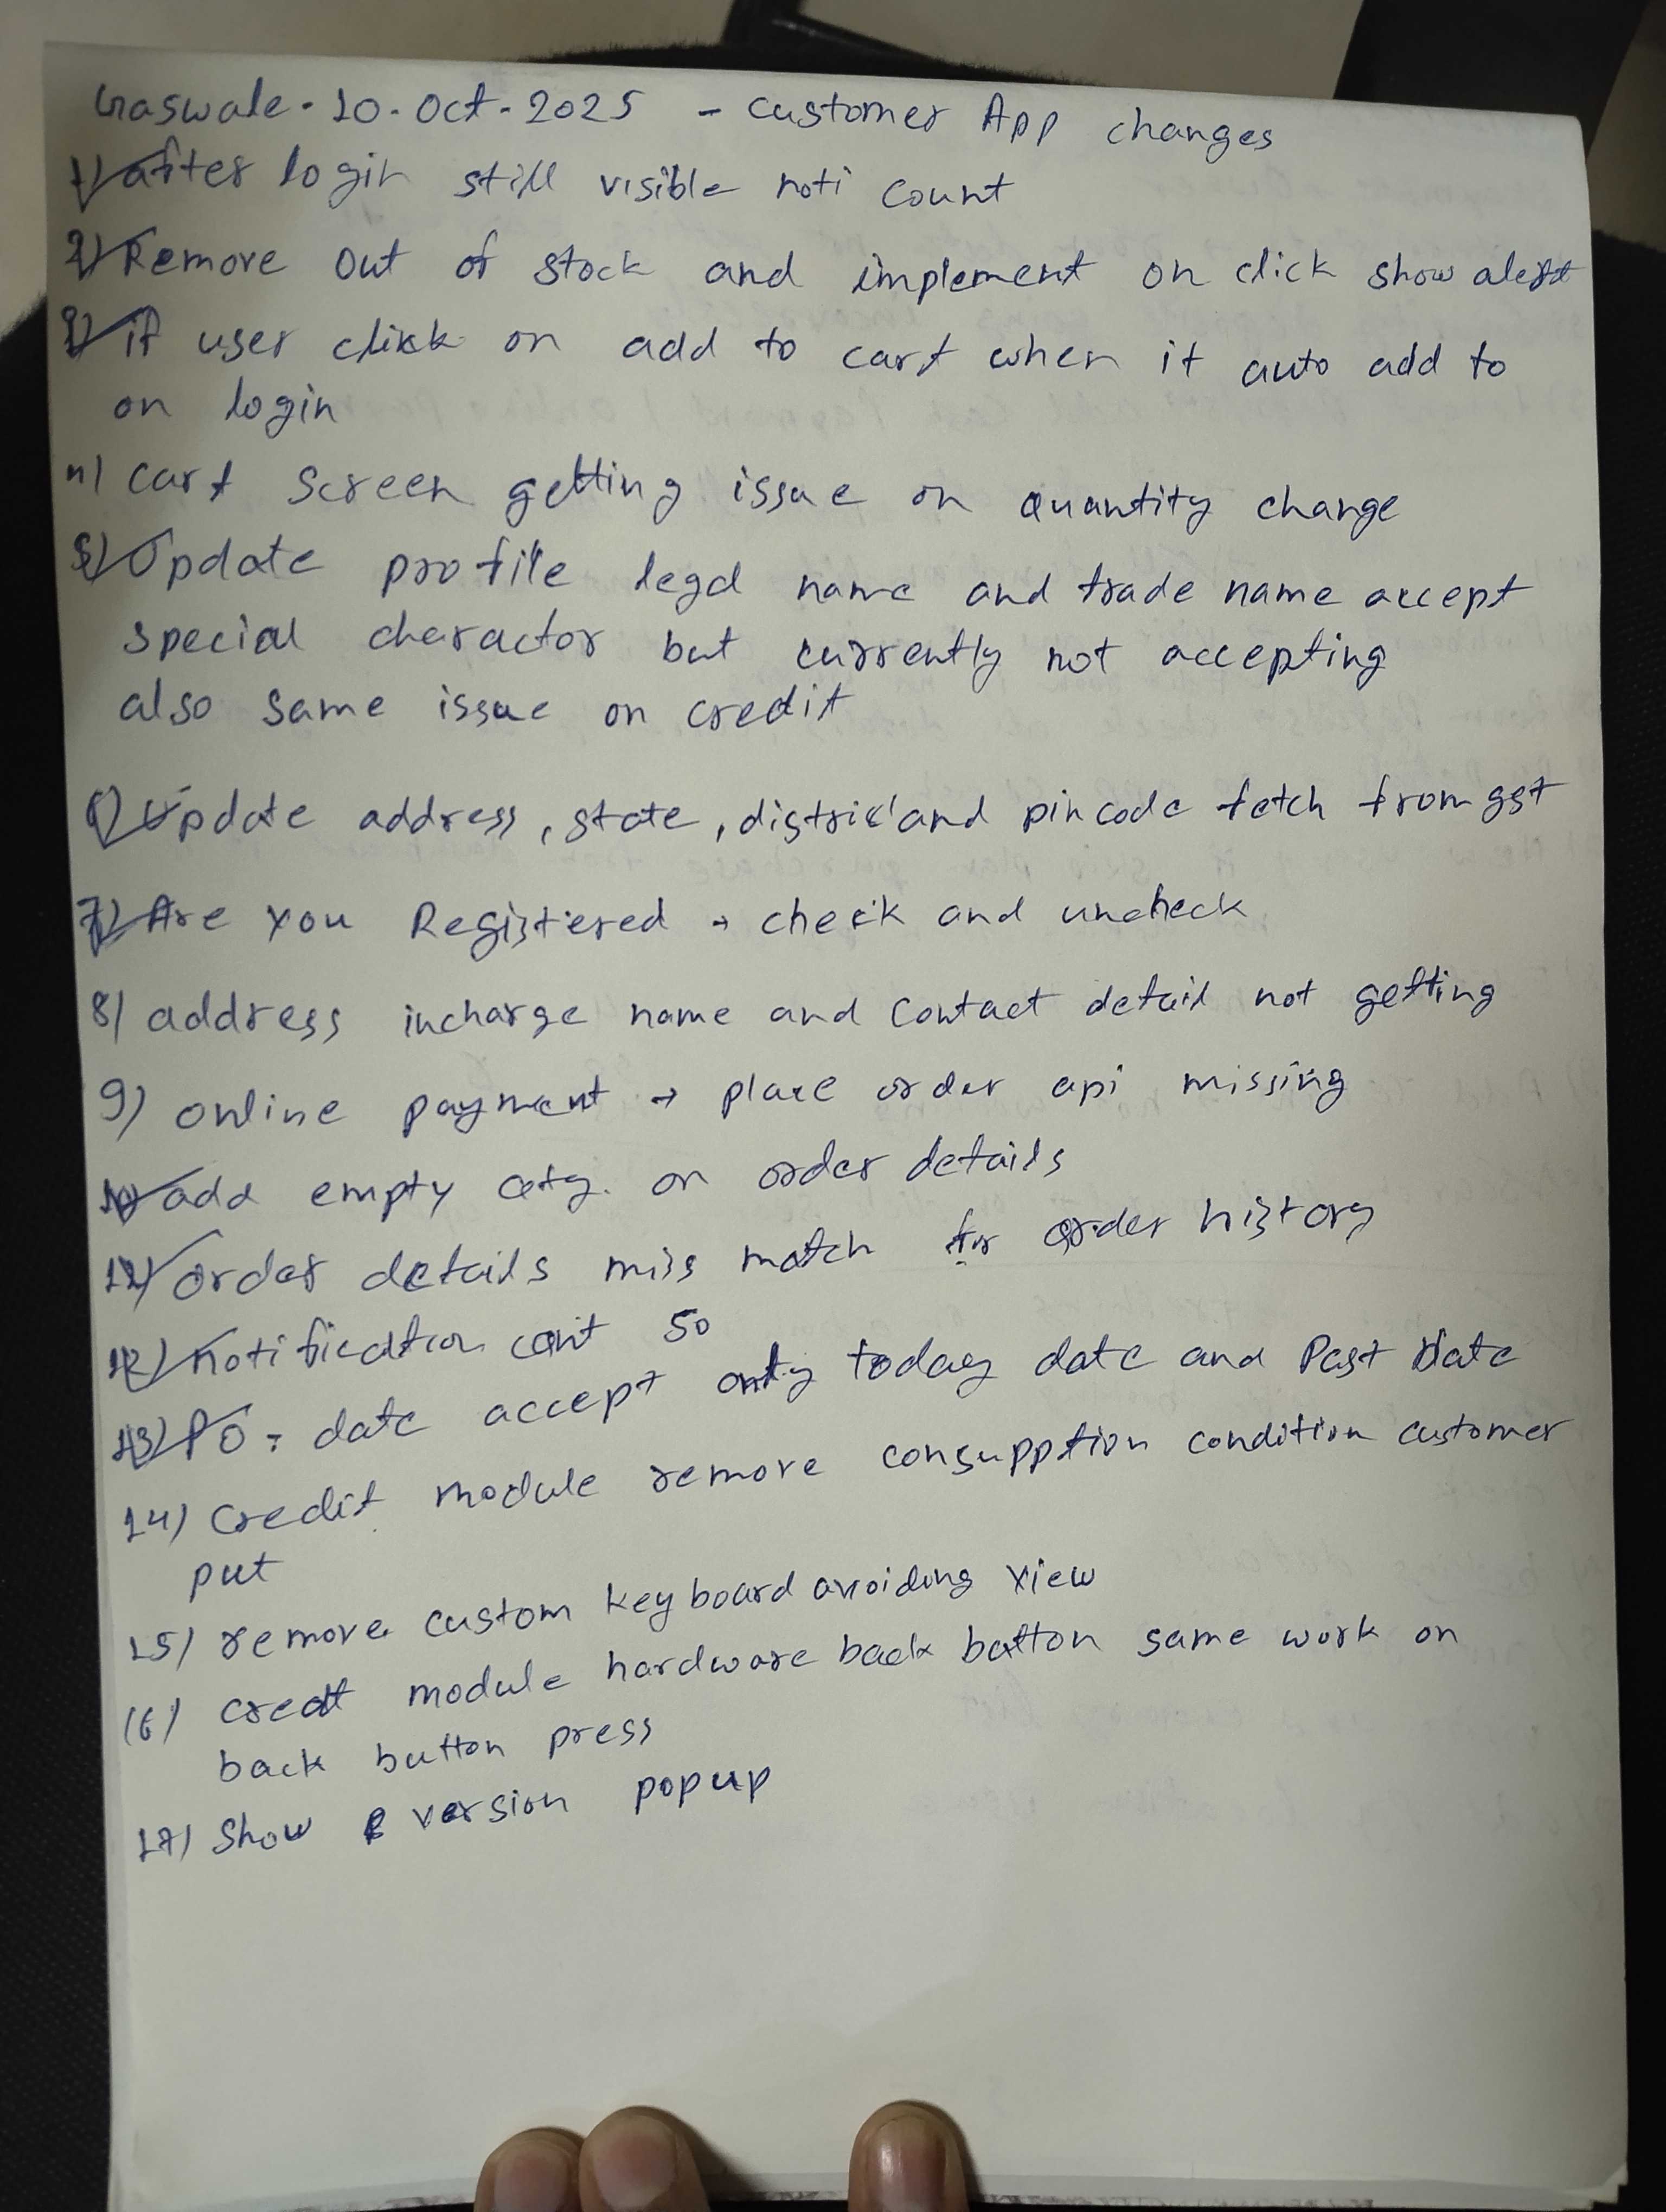 Gaswale - 10 - Oct - 2025 - Customer App changes
1) after login still visible noti count
2) Remove out of stock and implement on click show alert
3) if user click on add to cart when it auto add to
on login
4) cart screen getting issue on quantity change
5) Update profile legal name and trade name accept
special charactor but currently not accepting
also same issue on credit
6) Update address, state, district and pincode fetch from gst
7) Are you Registered → check and uncheck
8) address incharge name and contact detail not getting
9) online payment → place order api missing
10) add empty on order details
11) order details miss match for order history
12) notification 50
13) PO - date accept only today date and Past Date
14) credit module remove consupption condition customer
put
15) remove custom keyboard avoiding view
16) credit module hardware back button same work on
back button press
17) Show version popup